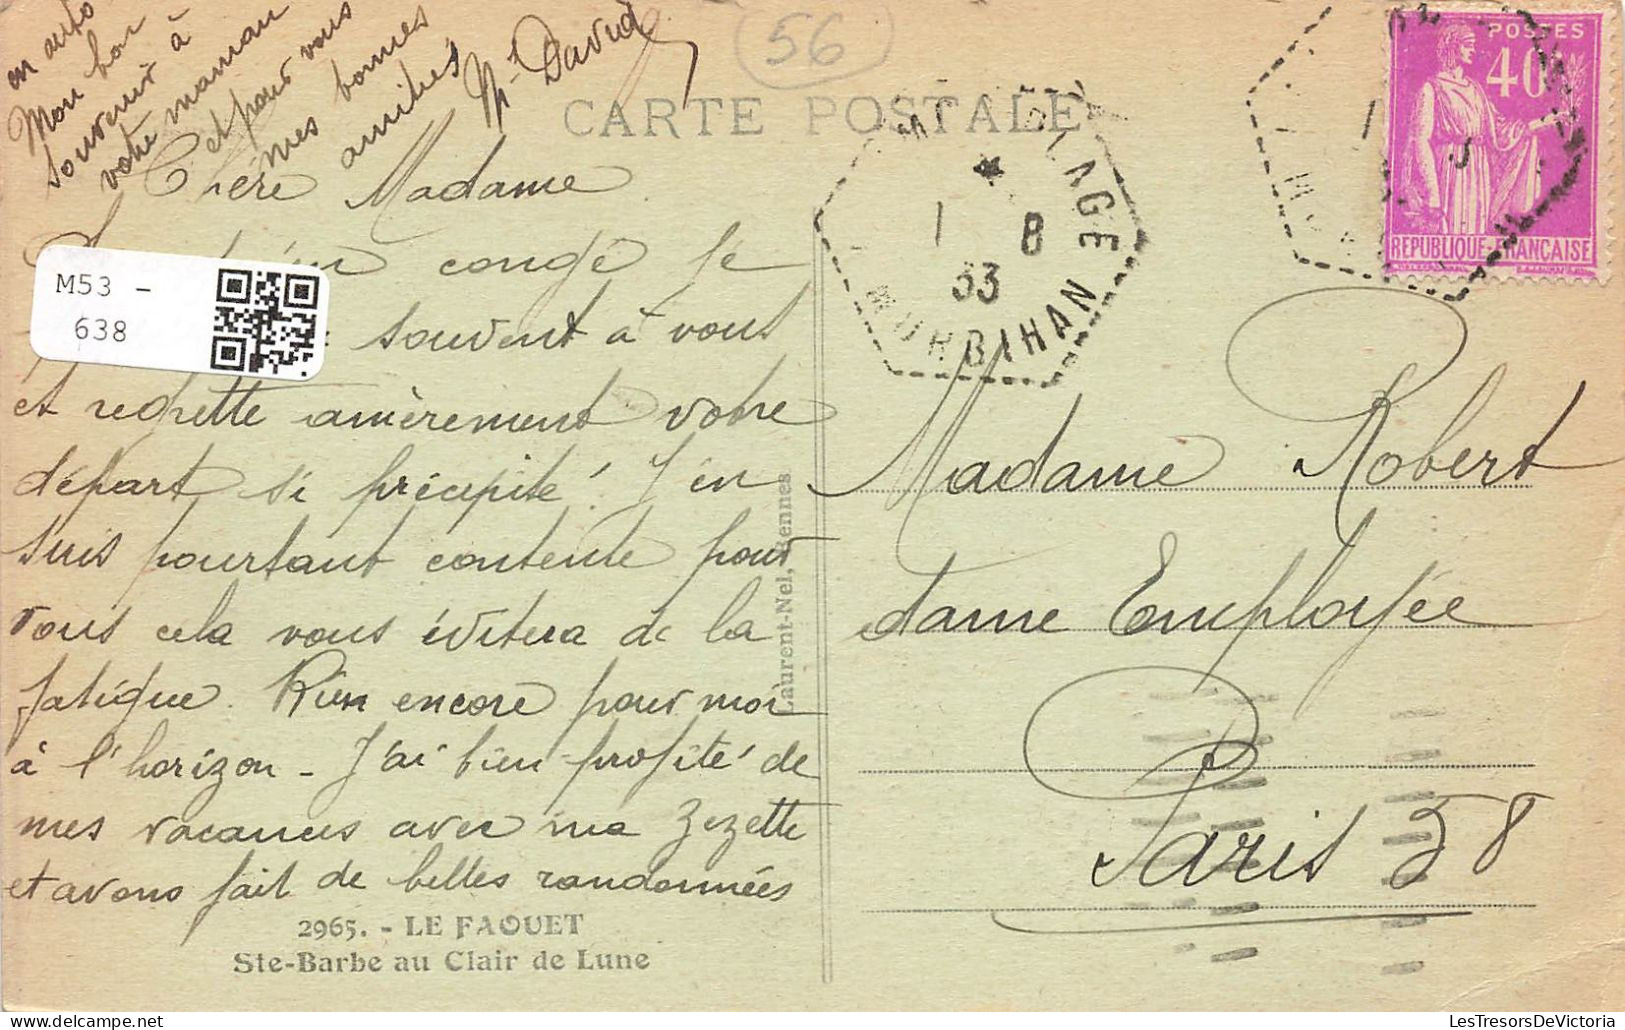 56
CARTE POSTALE
POSTES
40
REPUBLIQUE FRANÇAISE
1 8
33
MORBIHAN
M53 -
638
Chère Madame
congé je
souvent à vous
et regrette amèrement votre
départ si précipité ! J'en
suis pourtant contente pour
vous cela vous évitera de la
fatigue. Rien encore pour moi
à l'horizon - J'ai bien profité de
mes vacances avec ma Zezette
et avons fait de belles randonnées
en auto
Mon bon
souvenir à
votre maman
et pour vous
mes bonnes
amitiés
M. David
Laurent-Nel, Rennes
Madame Robert
dame Employée
Paris 38
2965. - LE FAOUET
Ste-Barbe au Clair de Lune
LesTresorsDeVictoria